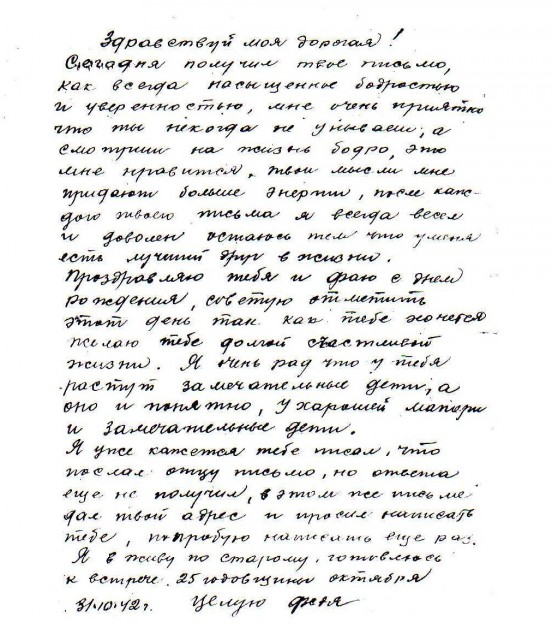 Здравствуй моя дорогая!
Сегодня получил твое письмо,
как всегда насыщенное бодростью
и уверенностью, мне очень приятно
что ты некогда не унываеш, а
смотриш на жизнь бодро, это
мне нравится, твои мысли мне
придают больше энергии, после каж-
дого твоего письма я всегда весел
и доволен остаюсь тем что у меня
есть лучший друг в жизни.
Проздравляю тебя и фаю с днем
рождения, советую отметить
этот день так как тебе хочется
желаю тебе долгой счастливой
жизни. Я очень рад что у тебя
растут замечательные дети, а
оно и понятно, у харошей матери
и замечательные дети.
Я уже кажется тебе писал, что
послал отцу письмо, но ответа
еще не получил, в этом же письме
дал твой адрес и просил написать
тебе, попробую написать еще раз.
Я в живу по старому, готовлюсь
к встрече 25 годовщины октября
31.10.42г. Целую феня